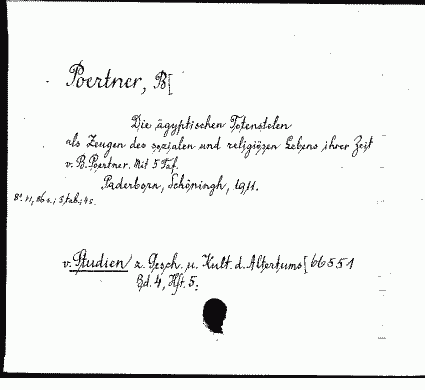 Poertner, B[
Die ägyptischen Totenstelen
als Zeugen des sozialen und religiösen Lebens ihrer Zeit
v. B. Poertner. Mit 5 Taf.
Paderborn, Schöningh, 1911.
8°. VI, 86 s.; 5 tab.; 4 s.
v. Studien z. Gesch. u. Kult. d. Altertums[ 66551
Bd. 4, Hft. 5.